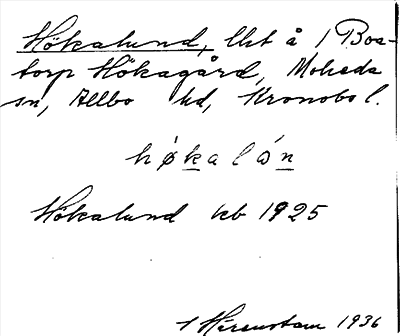 Hökalund, lht å 1 Boa-
torp Hökagård, Moheda
sn, Allbo hd, Kronobo l.
høkalón
Hökalund kb 1925
Hirenstam 1936